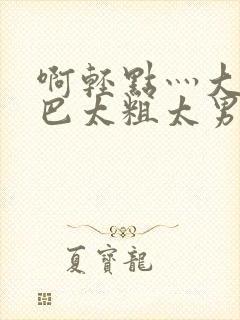 啊輕點灬大
巴太粗太男
夏寶龍